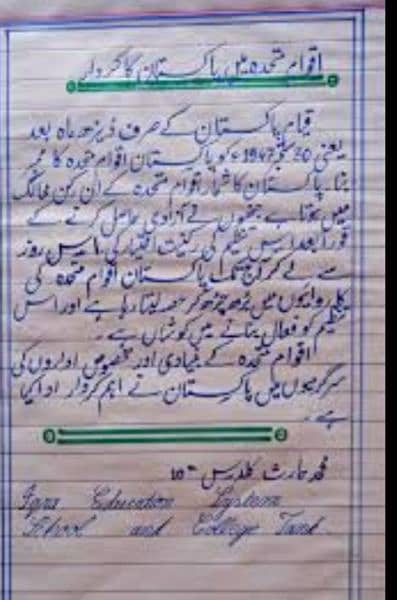 اقوام متحدہ میں پاکستان کا کردار
قیام پاکستان کے صرف ڈیڑھ ماہ بعد
یعنی 30 ستمبر 1947ء کو پاکستان اقوام متحدہ کا ممبر
بنا۔ پاکستان کا شمار اقوام متحدہ کے ان رکن ممالک
میں ہوتا ہے جنھوں نے آزادی حاصل کرنے کے
فوراً بعد اس تنظیم کی رکنیت اختیار کی، اس روز
سے لے کر آج تک پاکستان اقوام متحدہ کی
کارروائیوں میں بڑھ چڑھ کر حصہ لیتا رہا ہے اور اس
تنظیم کو فعال بنانے میں کوشاں ہے۔
اقوام متحدہ کے بنیادی اور مخصوص اداروں کی
سرگرمیوں میں پاکستان نے اہم کردار ادا کیا
ہے۔
محمد حارث کلاس 10th
Iqra Education System
School and College Tank